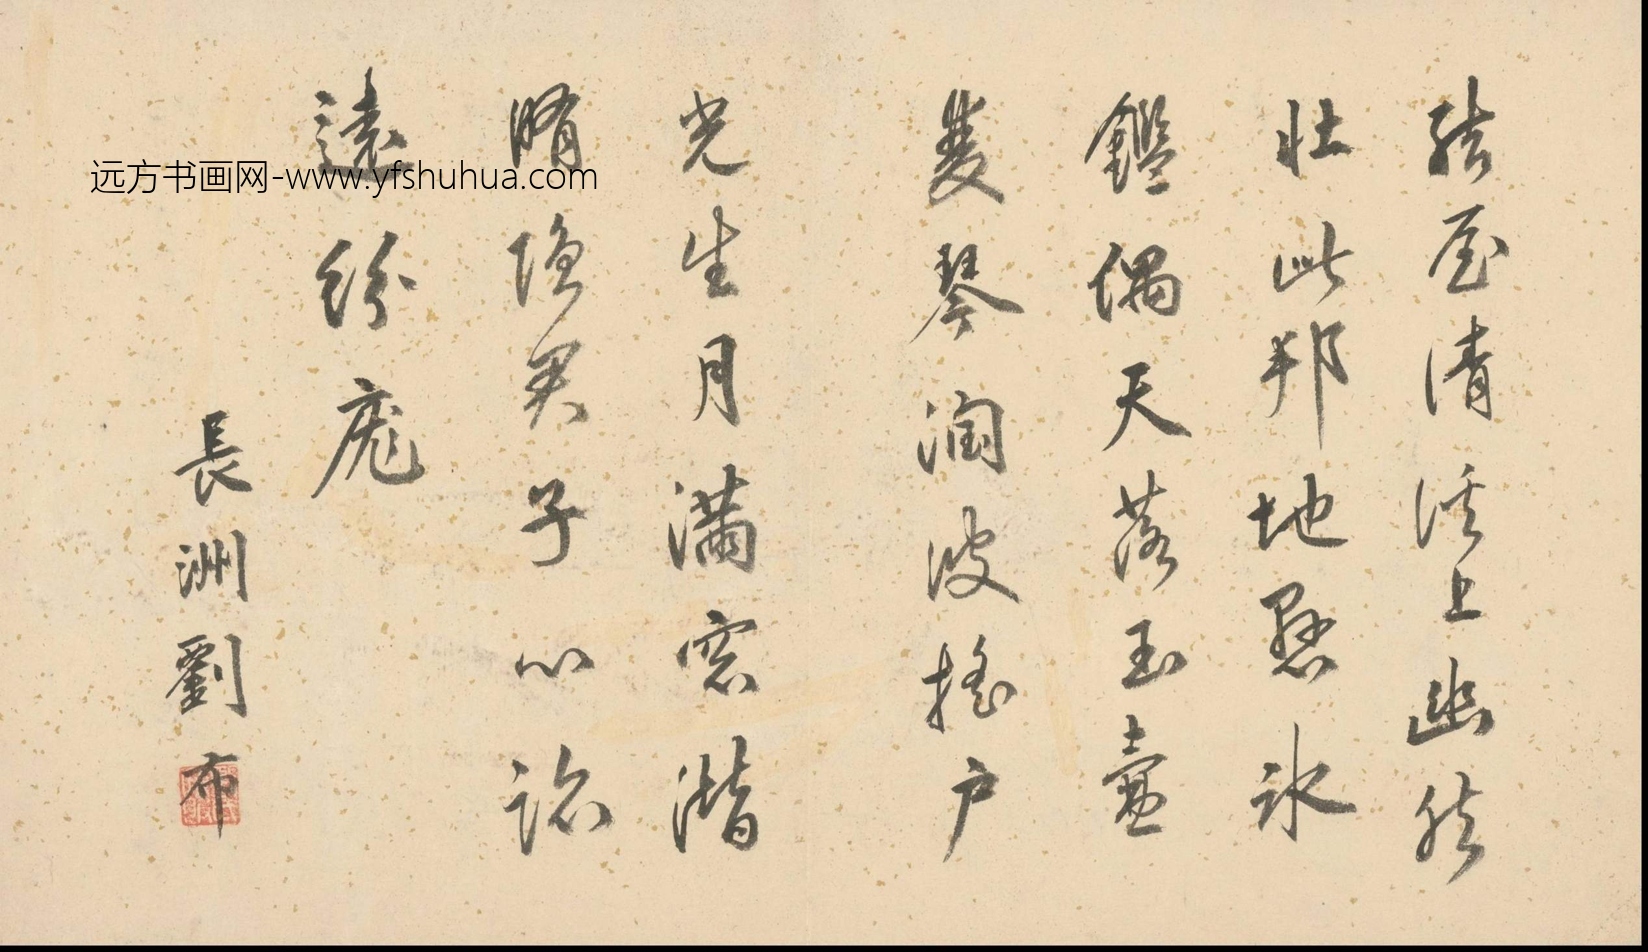 結屋清溪上幽然
壯此邦地懸冰
鑑偶天落玉壺
雙琴潤波搖户
光生月滿窓潛
脩隐君子心跡
遠紛庬
長洲劉布
远方书画网-www.yfshuhua.com